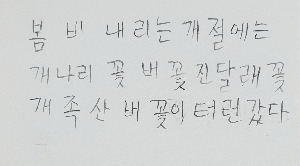 봄 비 내리는 개 절에는
개나리 꽃 버 꽃 진달래 꽃
개 족 산 버 꽃이 터런 갔다